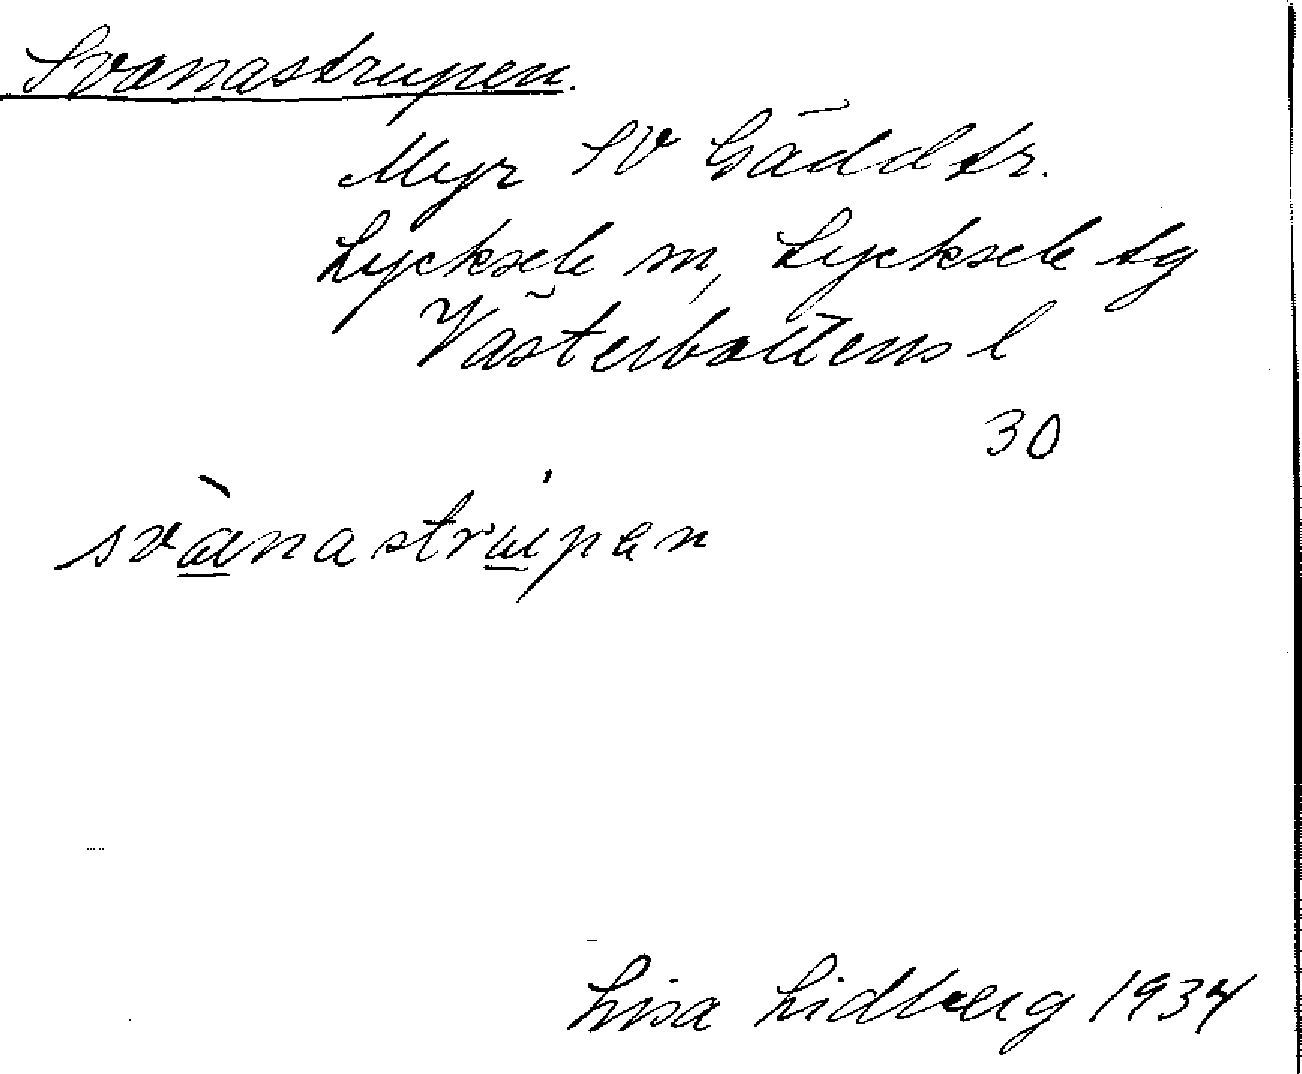 Svanastrupen.
Myr SV Gäddtr.
Lycksele m, Lycksele tg
Västerbottens l
30
svànastrùpen
Lisa Lidberg 1934